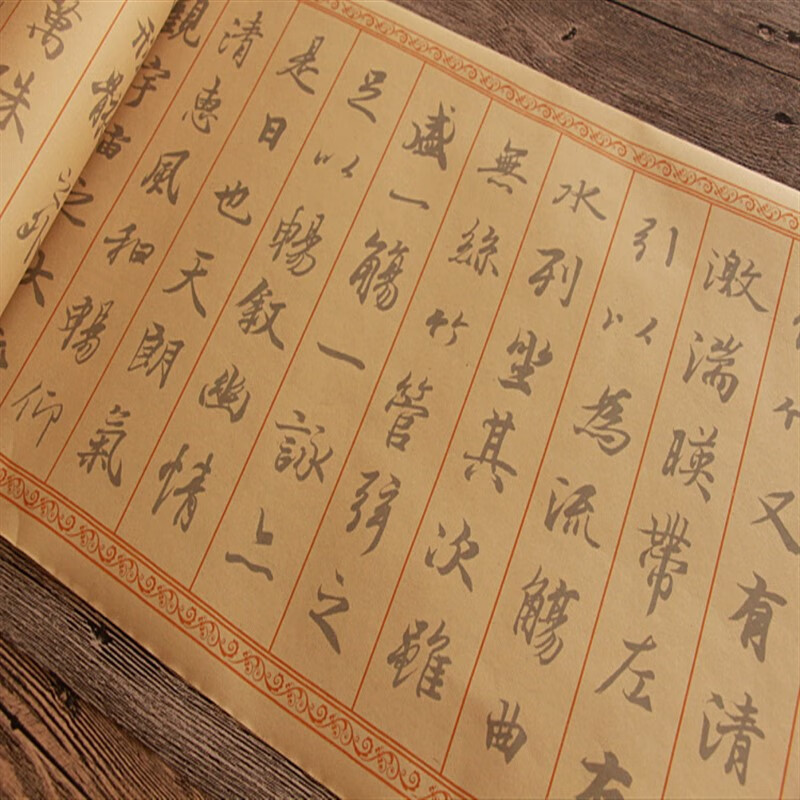 竹又有清
激湍暎帶左右
引以為流觴曲
水列坐其次雖
無絲竹管弦之
盛一觴一詠亦
足以暢敘幽情
是日也天朗氣
清惠風和暢仰
觀宇宙之大
形骸之外
萬殊